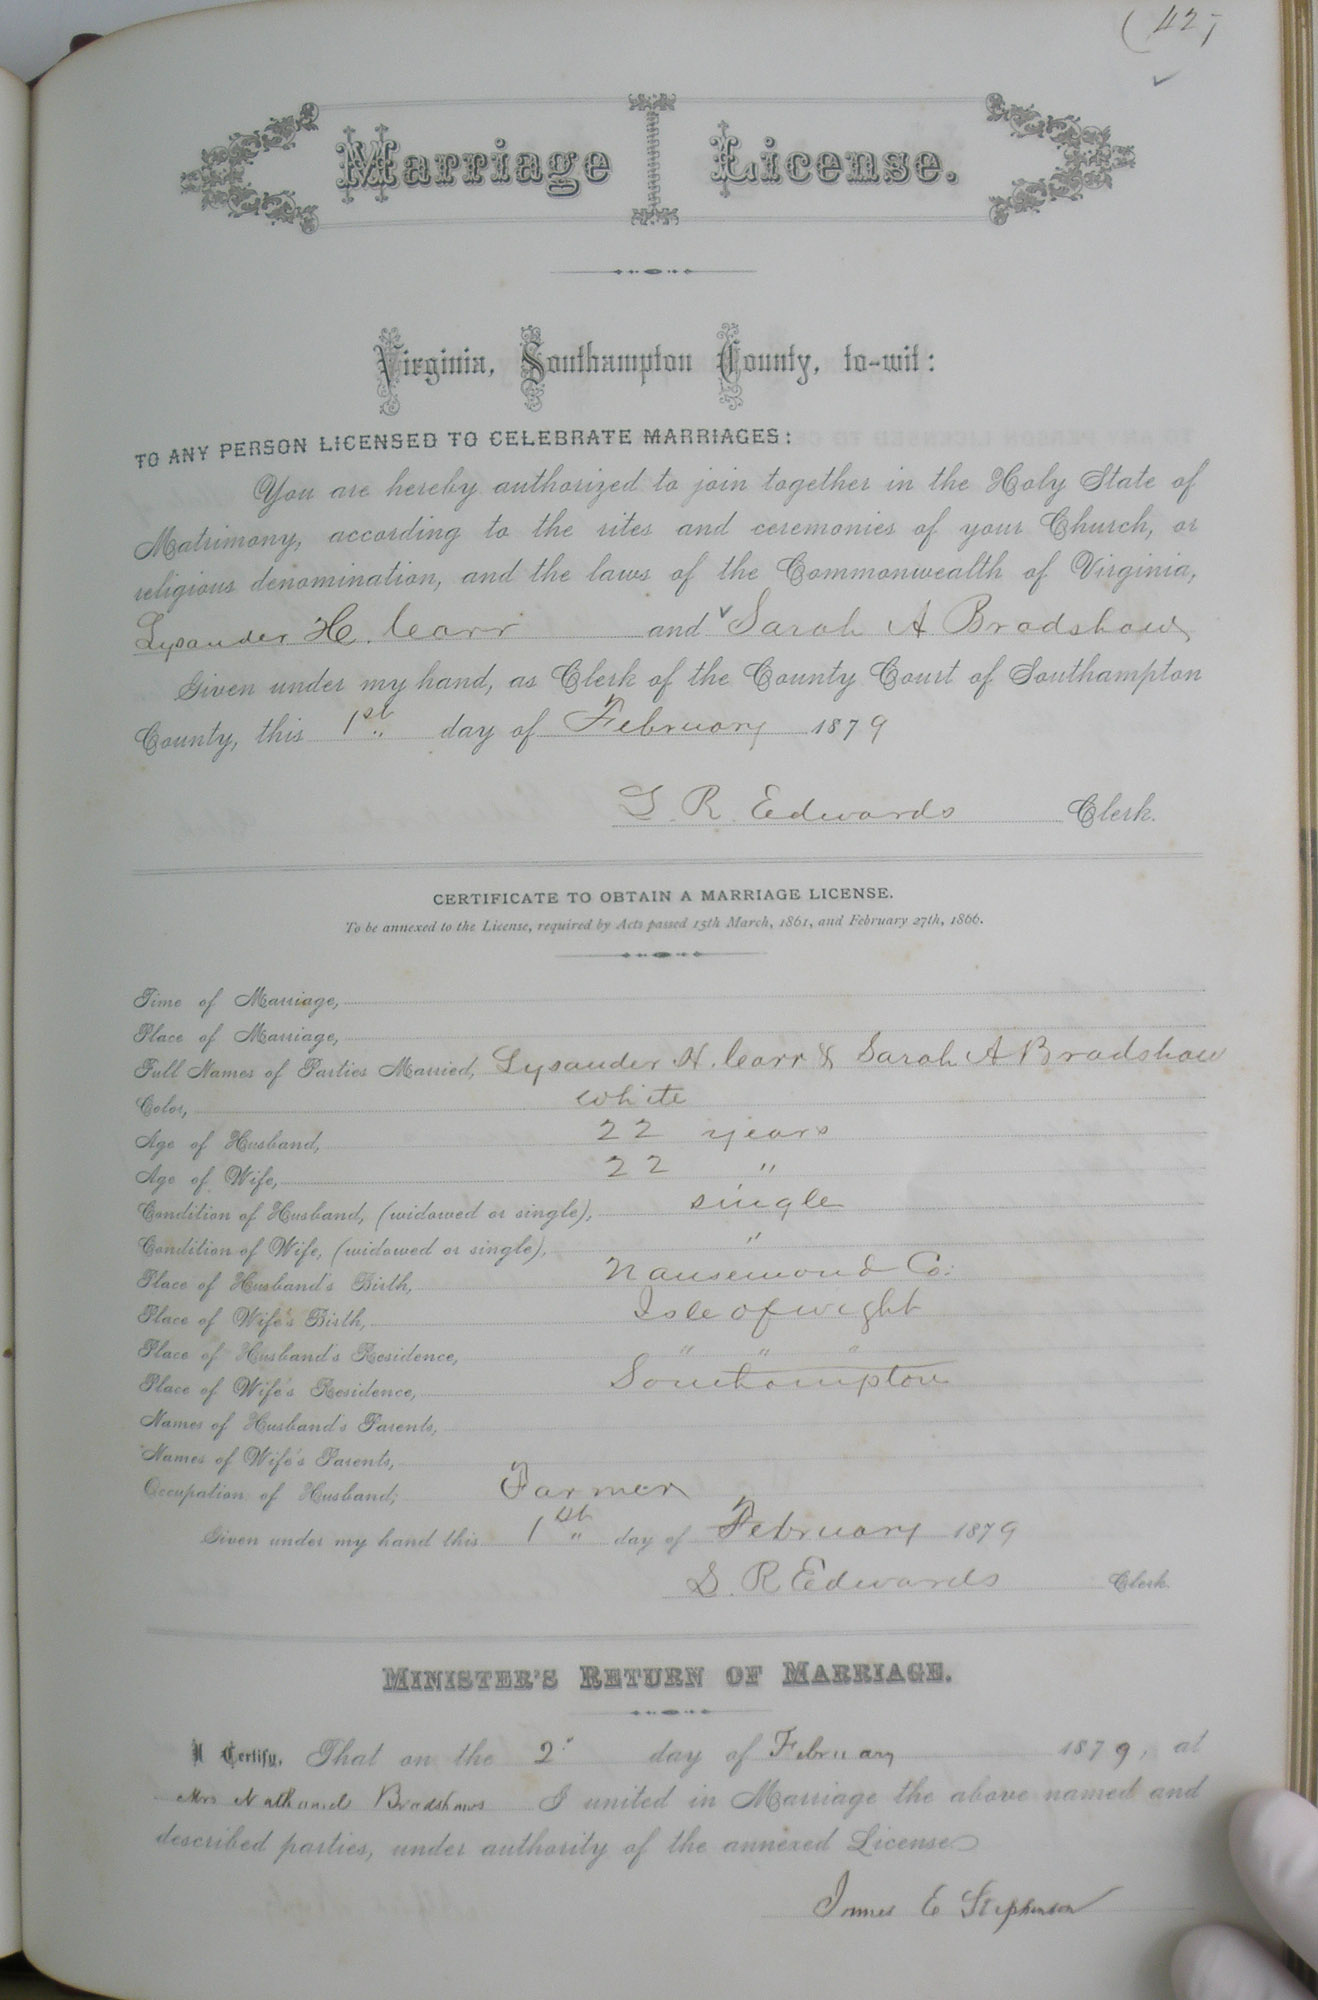 (42)
Marriage License.
Virginia, Southampton County, to-wit:
TO ANY PERSON LICENSED TO CELEBRATE MARRIAGES:
You are hereby authorized to join together in the Holy State of
Matrimony, according to the rites and ceremonies of your Church, or
religious denomination, and the laws of the Commonwealth of Virginia,
Lysander H. Carr and Sarah A Bradshaw
Given under my hand, as Clerk of the County Court of Southampton
County, this 1st day of February 1879
L. R. Edwards Clerk.
CERTIFICATE TO OBTAIN A MARRIAGE LICENSE.
To be annexed to the License, required by Acts passed 15th March, 1861, and February 27th, 1866.
Time of Marriage,
Place of Marriage,
Full Names of Parties Married, Lysander H. Carr & Sarah A Bradshaw
Color, white
Age of Husband, 22 years
Age of Wife, 22 "
Condition of Husband, (widowed or single), single
Condition of Wife, (widowed or single), "
Place of Husband's Birth, Nansemond Co:
Place of Wife's Birth, Isle of wight
Place of Husband's Residence, " " "
Place of Wife's Residence, Southampton
Names of Husband's Parents,
Names of Wife's Parents,
Occupation of Husband, Farmer
Given under my hand this 1st day of February 1879
L. R Edwards Clerk.
MINISTER'S RETURN OF MARRIAGE.
I Certify, That on the 2d day of February 1879, at
Mrs Nathaniel Bradshaws I united in Marriage the above named and
described parties, under authority of the annexed License
James E Stephenson